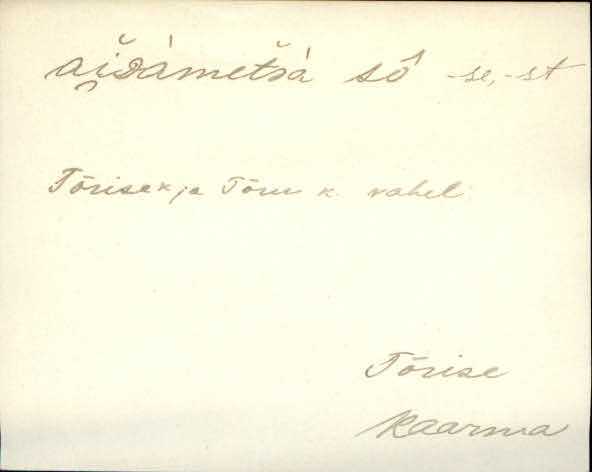 ai̯dàmetsà sô -se, -st
Tõrise k ja Tõru k. vahel
Tõrise
Kaarma